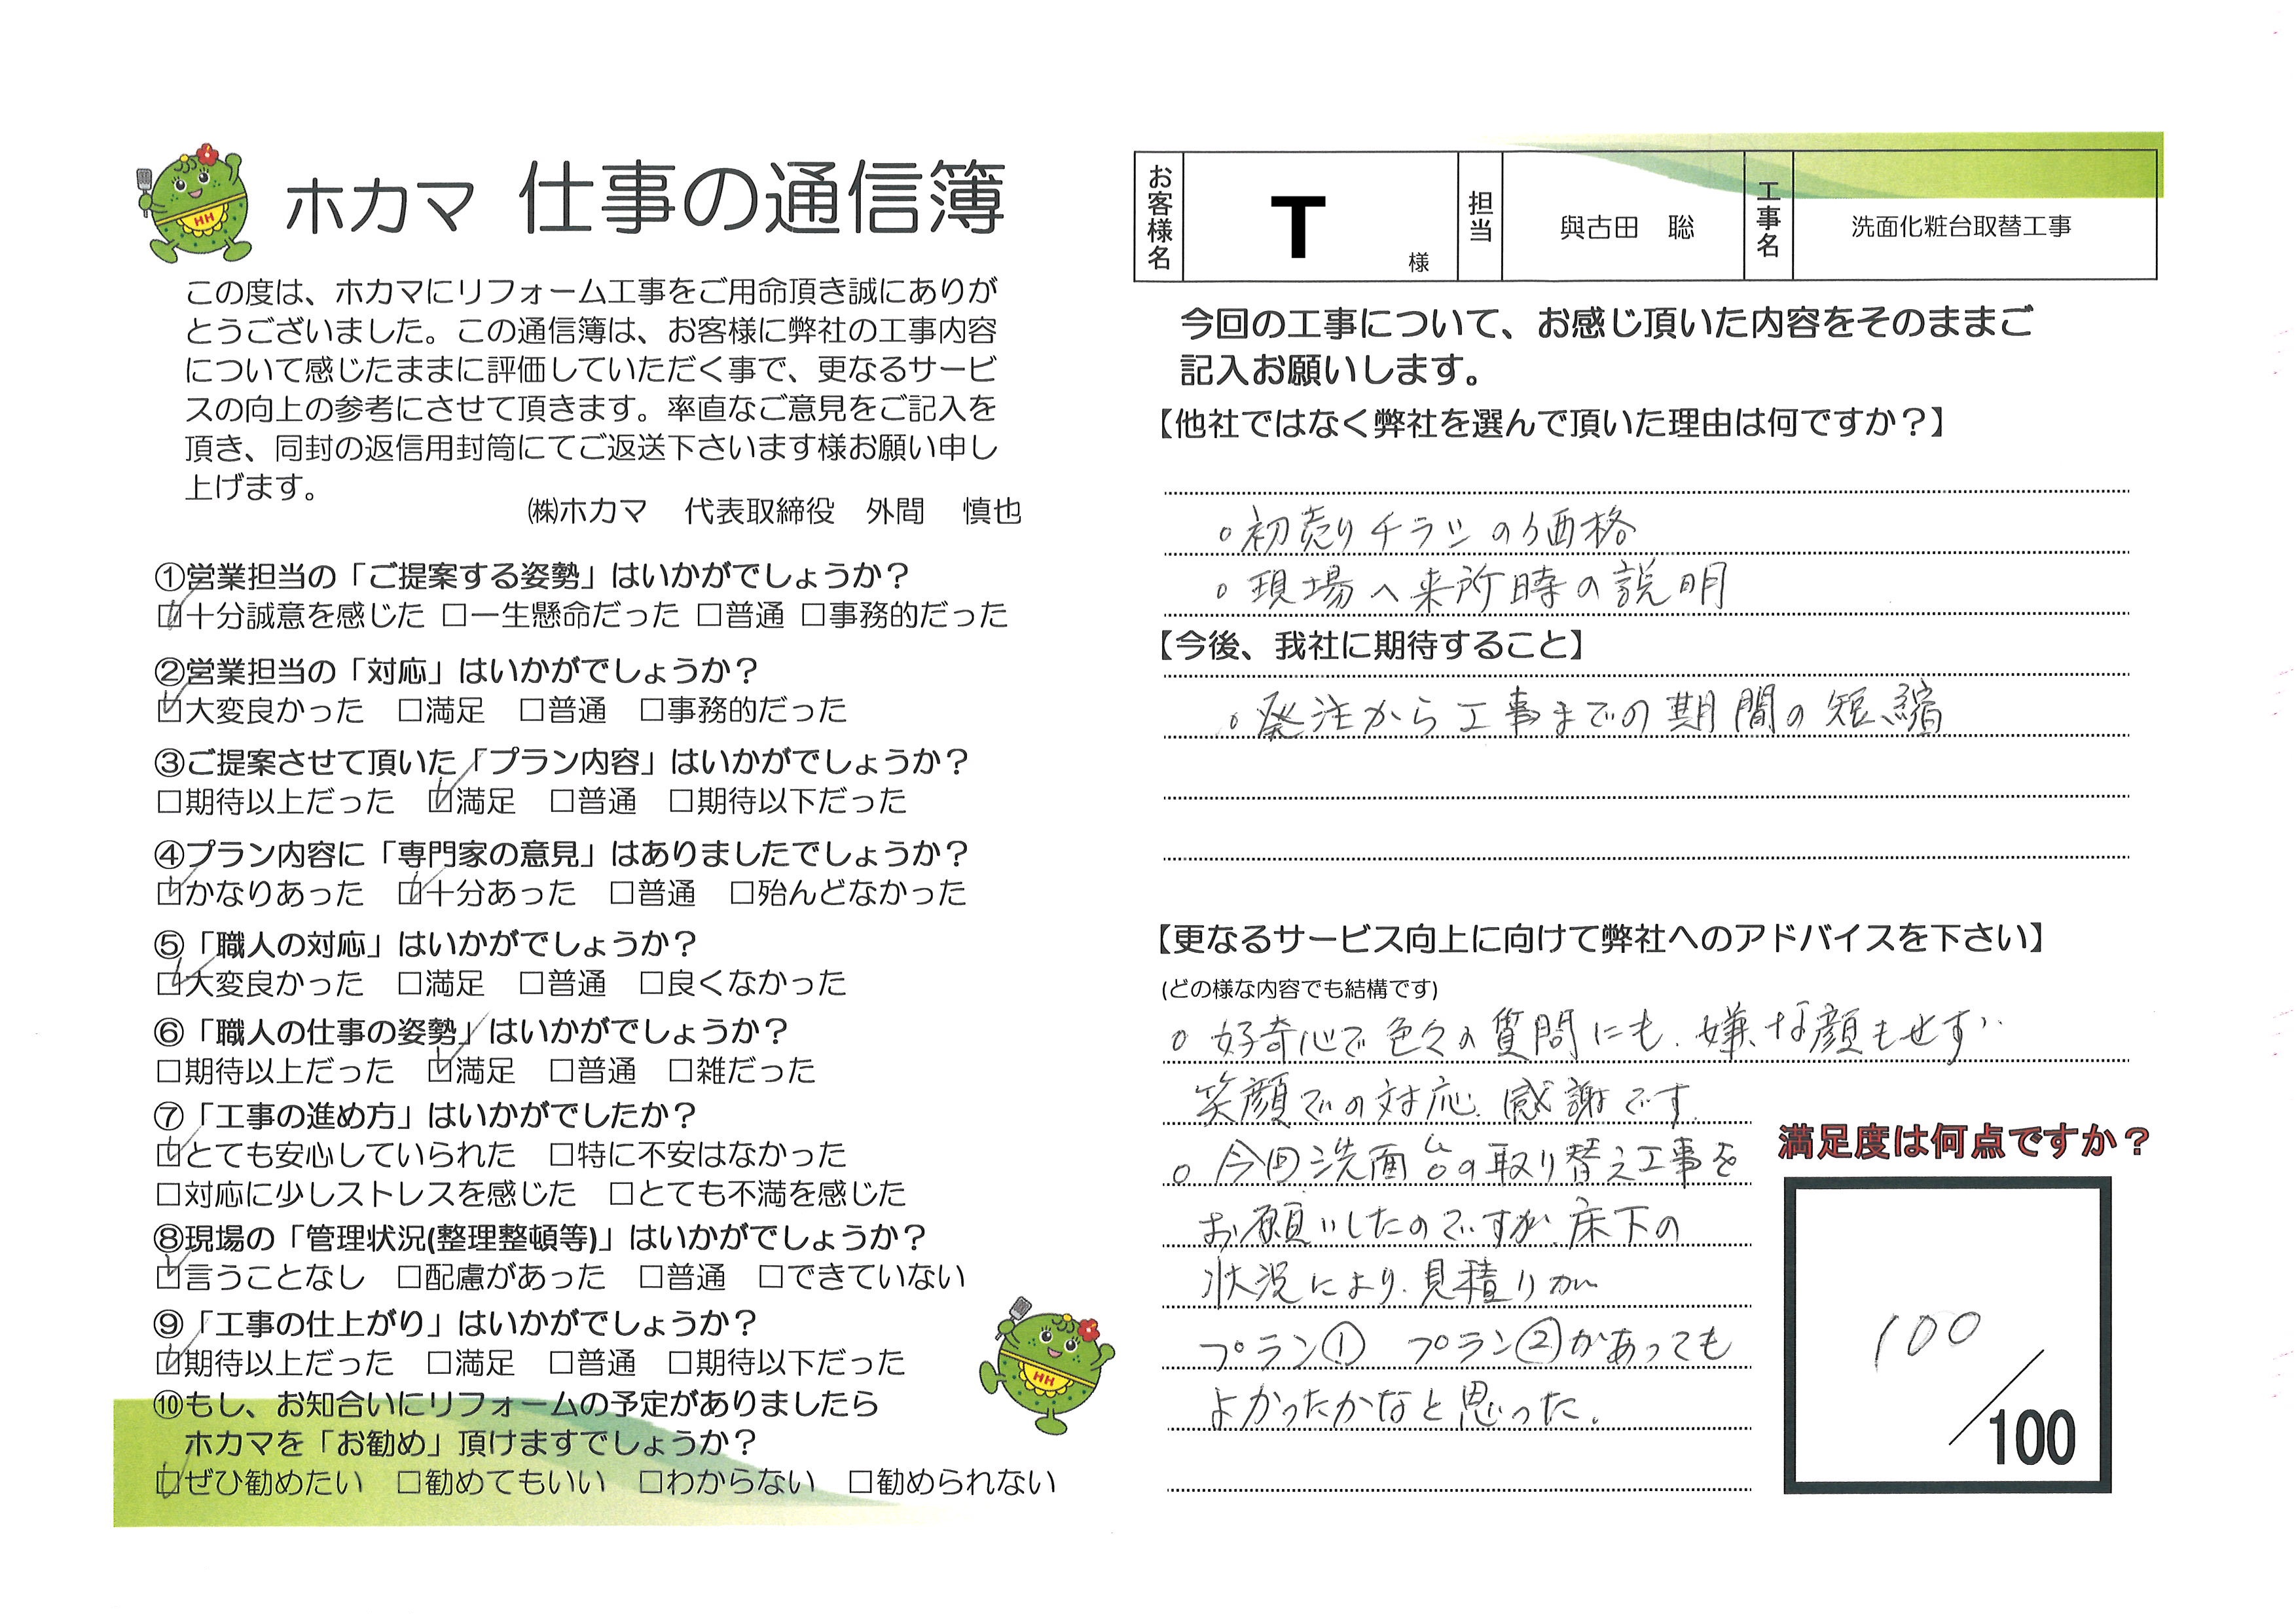 ホカマ 仕事の通信簿
この度は、ホカマにリフォーム工事をご用命頂き誠にありが
とうございました。この通信簿は、お客様に弊社の工事内容
について感じたままに評価していただく事で、更なるサービ
スの向上の参考にさせて頂きます。率直なご意見をご記入を
頂き、同封の返信用封筒にてご返送下さいます様お願い申し
上げます。
㈱ホカマ 代表取締役 外間 慎也
①営業担当の「ご提案する姿勢」はいかがでしょうか？
☑十分誠意を感じた □一生懸命だった □普通 □事務的だった
②営業担当の「対応」はいかがでしょうか？
☑大変良かった □満足 □普通 □事務的だった
③ご提案させて頂いた「プラン内容」はいかがでしょうか？
□期待以上だった ☑満足 □普通 □期待以下だった
④プラン内容に「専門家の意見」はありましたでしょうか？
☑かなりあった ☑十分あった □普通 □殆んどなかった
⑤「職人の対応」はいかがでしょうか？
☑大変良かった □満足 □普通 □良くなかった
⑥「職人の仕事の姿勢」はいかがでしょうか？
□期待以上だった ☑満足 □普通 □雑だった
⑦「工事の進め方」はいかがでしたか？
☑とても安心していられた □特に不安はなかった
□対応に少しストレスを感じた □とても不満を感じた
⑧現場の「管理状況(整理整頓等)」はいかがでしょうか？
☑言うことなし □配慮があった □普通 □できていない
⑨「工事の仕上がり」はいかがでしょうか？
☑期待以上だった □満足 □普通 □期待以下だった
⑩もし、お知合いにリフォームの予定がありましたら
ホカマを「お勧め」頂けますでしょうか？
☑ぜひ勧めたい □勧めてもいい □わからない □勧められない
HH
HH
お客様名 T 様 担当 與古田 聡 工事名 洗面化粧台取替工事
今回の工事について、お感じ頂いた内容をそのままご
記入お願いします。
【他社ではなく弊社を選んで頂いた理由は何ですか？】
○初売りチラシの価格
○現場へ来所時の説明
【今後、我社に期待すること】
○発注から工事までの期間の短縮
【更なるサービス向上に向けて弊社へのアドバイスを下さい】
(どの様な内容でも結構です)
○好奇心で色々の質問にも、嫌な顔もせず
笑顔での対応、感謝です。
○今回洗面台の取り替え工事を
お願いしたのですが、床下の
状況により、見積りが
プラン① プラン②があっても
よかったかなと思った。
満足度は何点ですか？
100
／100